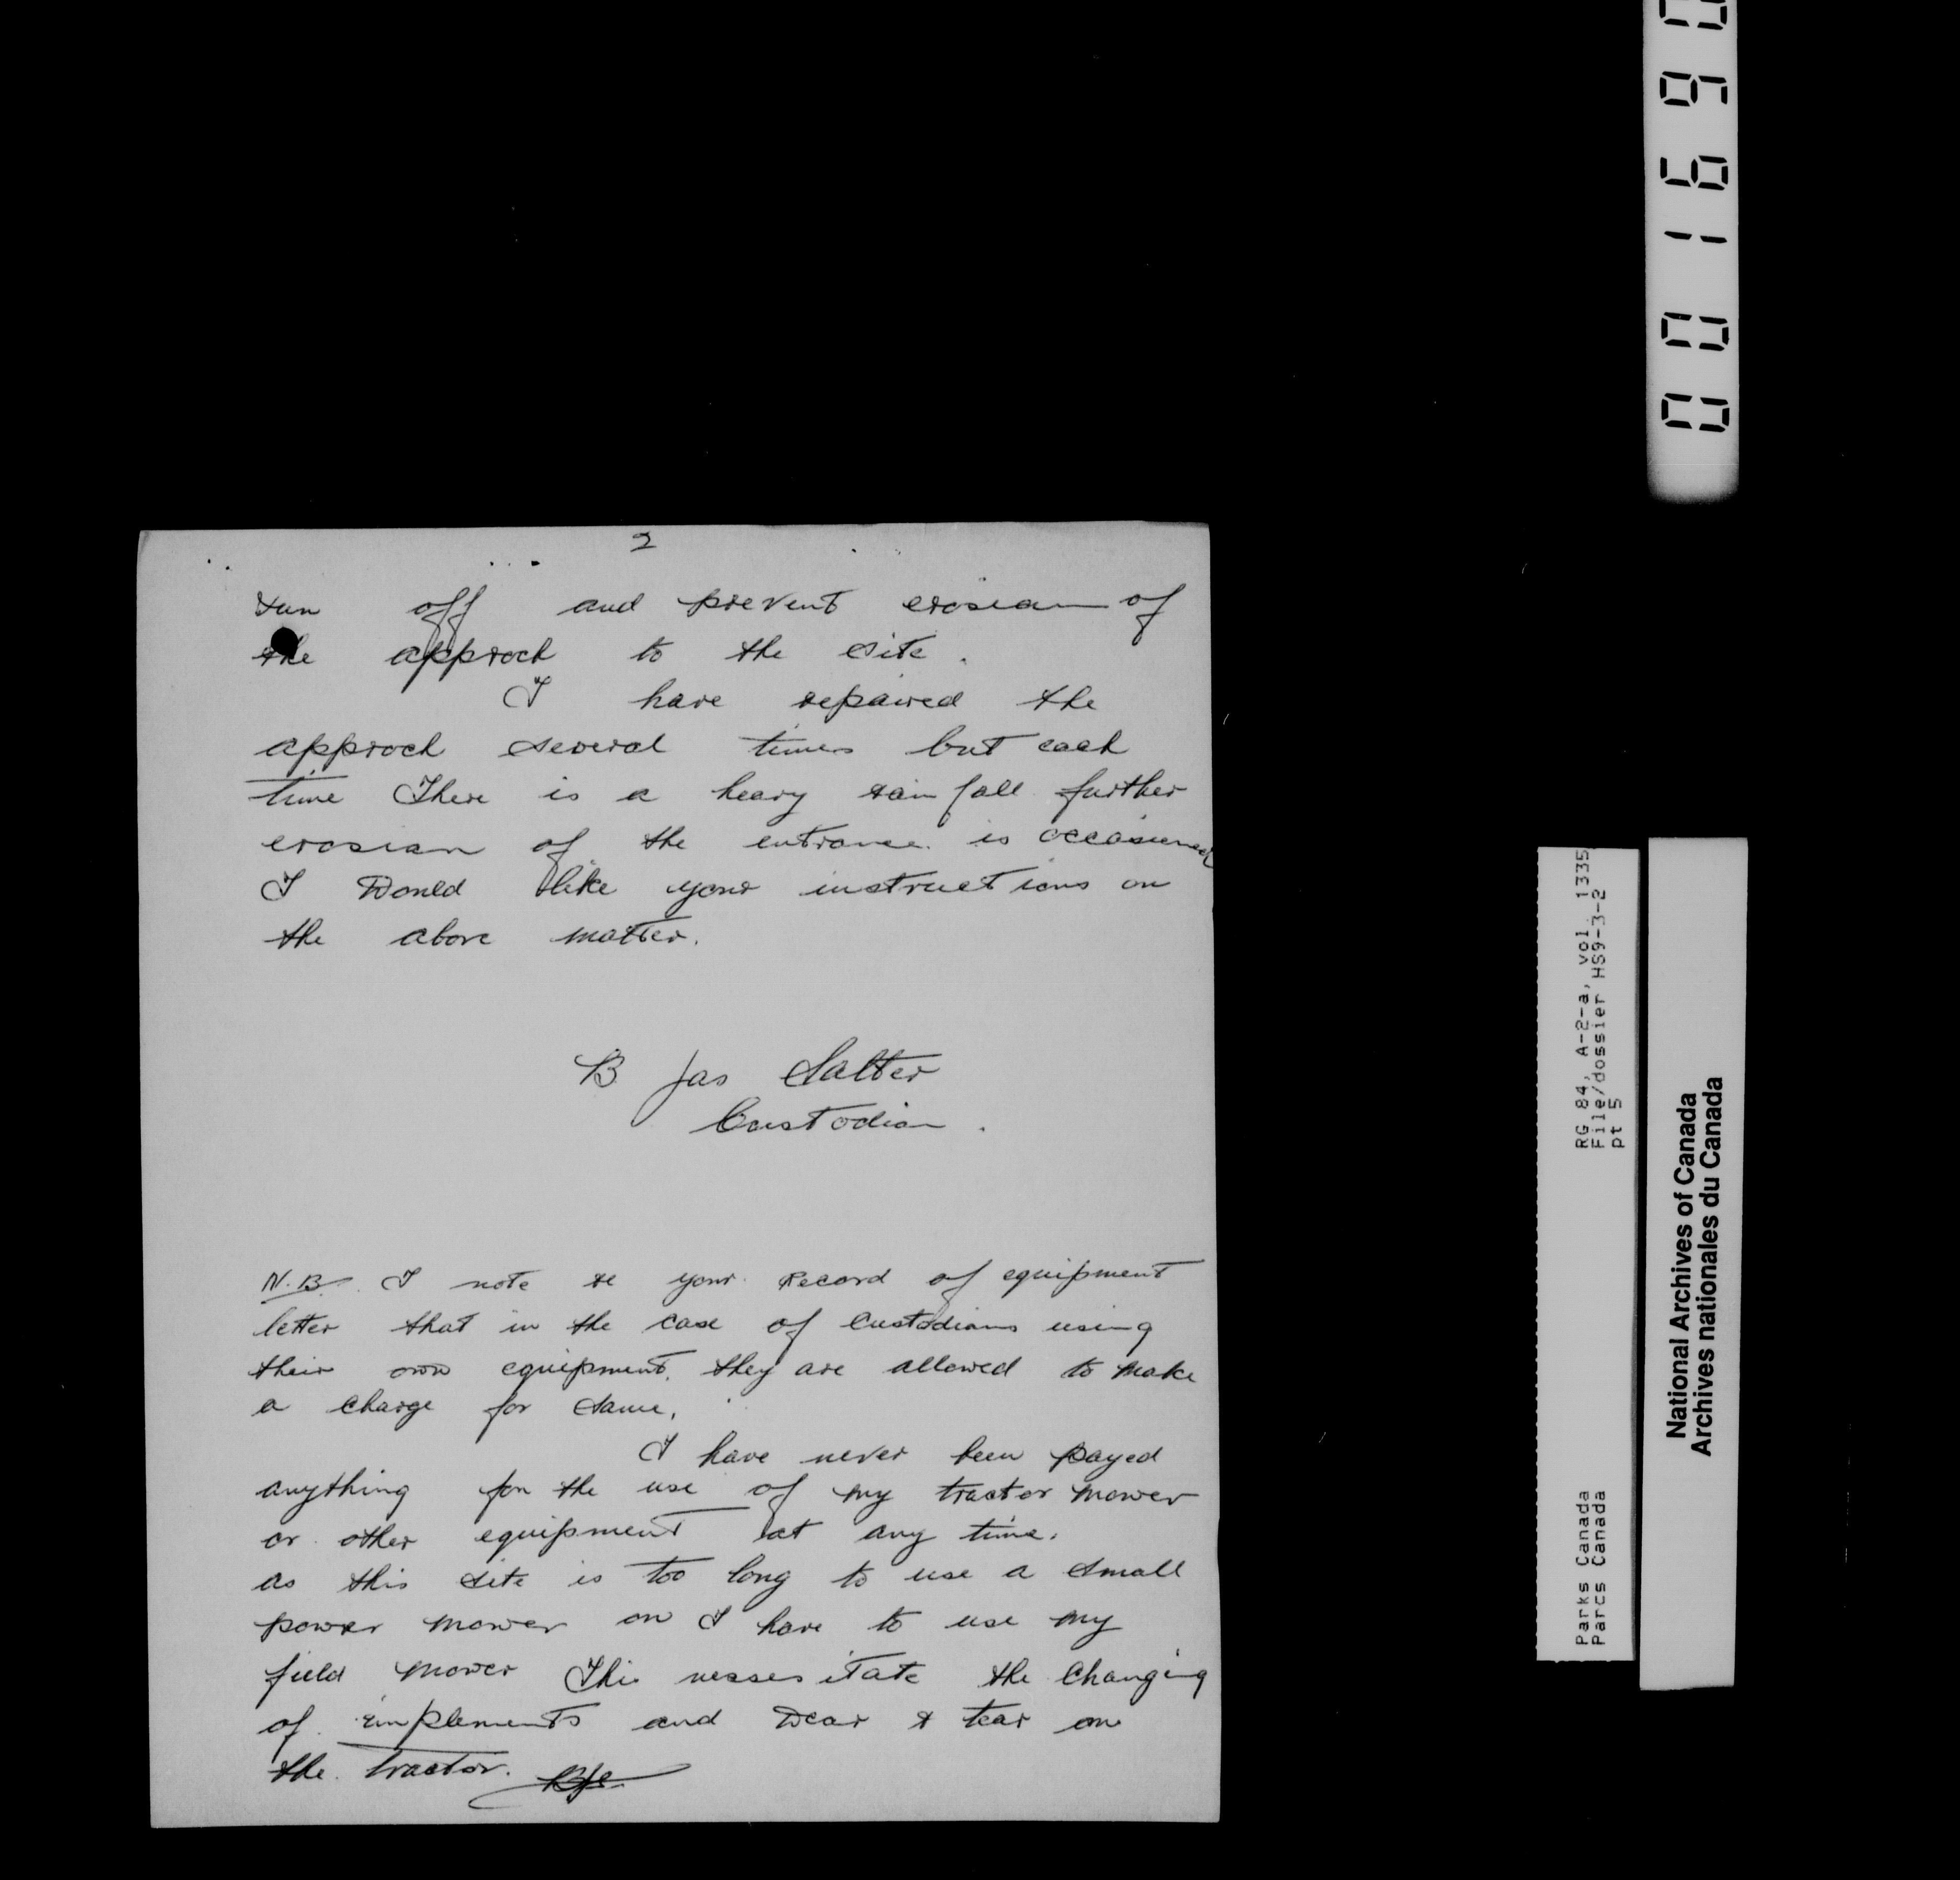 2
run off and prevent erosian of
the approch to the site.
I have repaired the
approch several times but each
time There is a heavy rain fall further
erosian of the entrance is occasioned
I Would like your instructions on
the above matter.
B Jas Salter
Custodian.
N.B. I note re your Record of equipment
letter that in the case of Custodians using
their own equipment, they are allowed to make
a charge for same.
I have never been payed
anything for the use of my tractor mower
or other equipment at any time.
as this site is too long to use a small
power mower on I have to use my
field mower This nessesitate the Changing
of implements and Wear & tear on
the tractor. BJS
RG 84, A-2-a, vol. 1335
File/dossier HS9-3-2
pt 5
Parks Canada
Parcs Canada
National Archives of Canada
Archives nationales du Canada